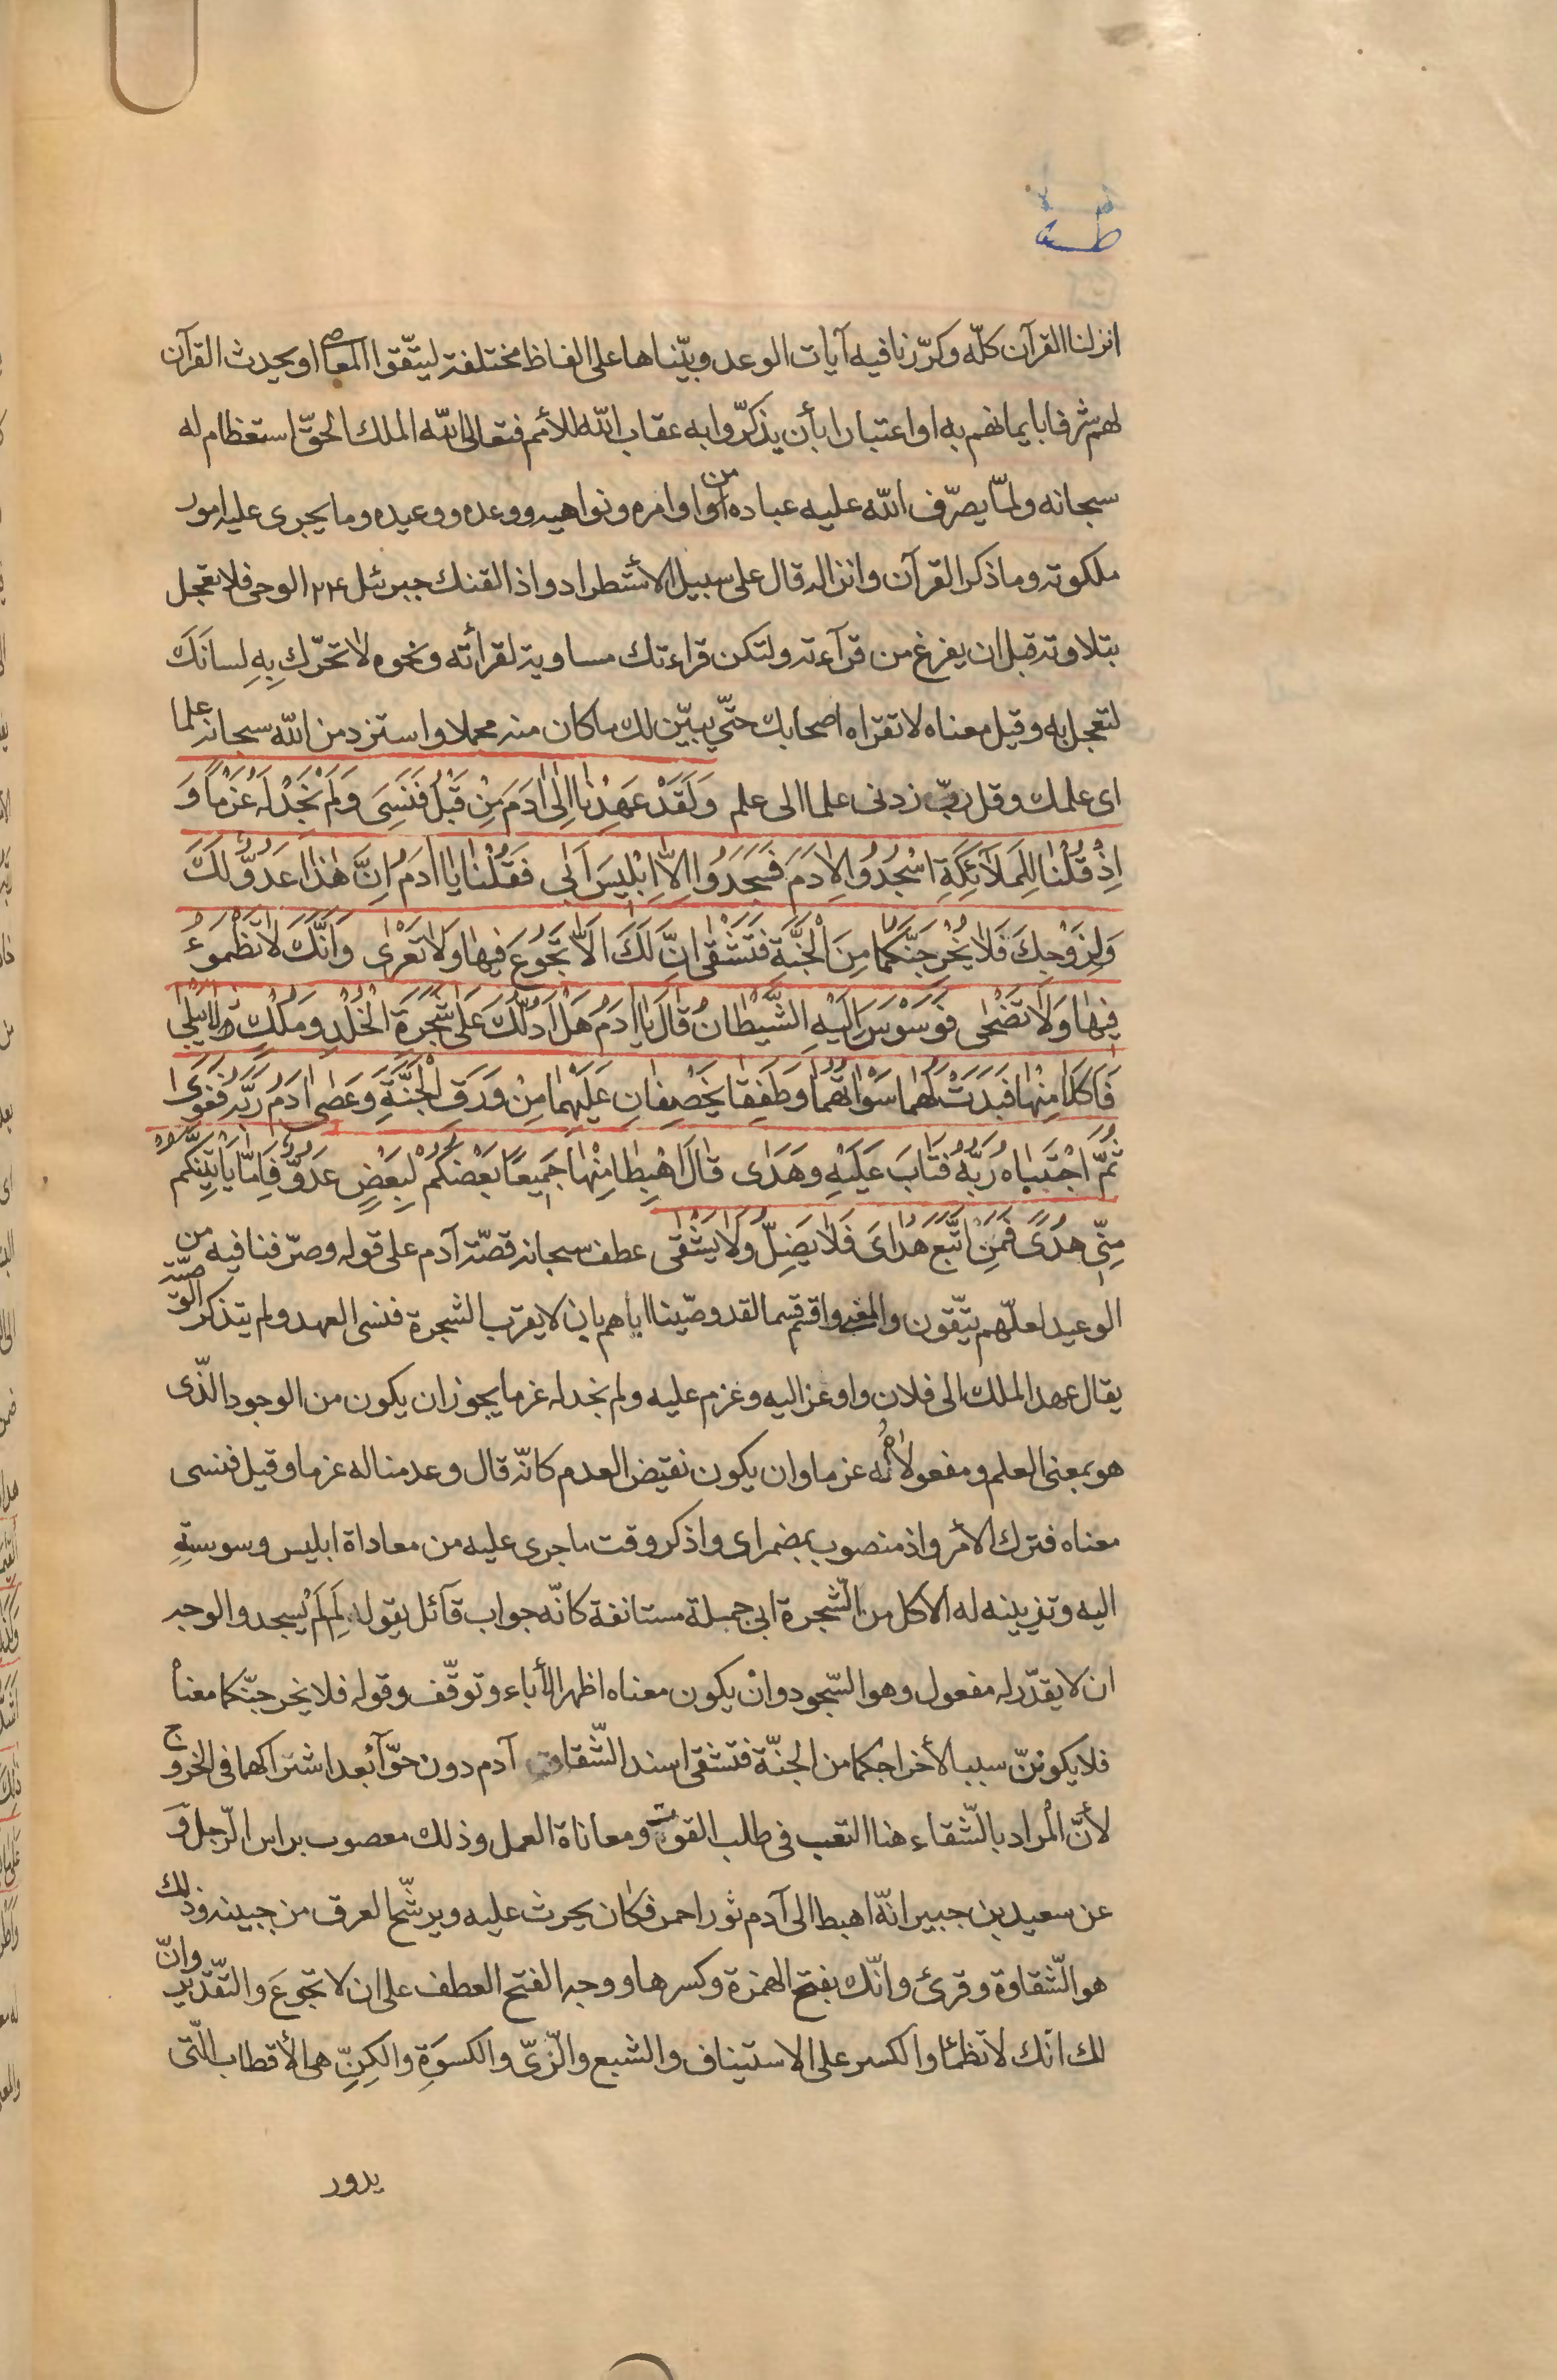 طه
انزلنا القرآن كلّه وكرّرنا فيه آيات الوعد وبيّناها على الفاظ مختلفة ليتّقوا المعاصى او يحدث القرآن
لهم شرفا بايمانهم به او اعتبارا بأن يذكّروا به عقاب الله للأمم فتعالى الله الملك الحقّ استعظام له
سبحانه ولمّا يصرّف الله عليه عباده من اوامره ونواهيه ووعده ووعيده وما يجرى عليه امور
ملكوته وما ذكر القرآن وانزاله قال على سبيل الأستطراد واذا لقنك جبرئيل ع الوحى فلا تعجل
بتلاوته قبل ان يفرغ من قرآءته ولتكن قراءتك مساوية لقرأته ونحوه لا تحرّك بِهِ لِسانَكَ
لتعجل به وقيل معناه لا تقراه اصحابك حتّى يبيّن لك ما كان منه مجملا واستزد من الله سبحانه علما
اى علمك وقل ربّ زدنى علما الى علم وَلَقَدْ عَهِدْنا اِلىٰ ادَمَ مِنْ قَبْلُ فَنَسِىَ وَلَمْ نَجِدْ لَهُ عَزْماً وَ
اِذْ قُلْنا لِلمَلاۤئِكَةِ اسْجُدُوا لِادَمَ فَسَجَدُوا اِلاّ اِبْليسَ اَبى فَقُلْنا يا ادَمُ اِنَّ هٰذا عَدُوٌّ لَكَ
وَلِزَوْجِكَ فَلا يُخْرِجَنَّكُما مِنَ الْجَنَّةِ فَتَشْقىٰ انَّ لَكَ اَلاّ تَجُوعَ فِيها وَلا تَعْرىٰ وَاَنَّكَ لا تَظْمَؤُ
فِيها وَلا تَضْحى فَوَسْوَسَ اِلَيْهِ الشَّيْطانُ قالَ يا ادَمُ هَلْ اَدُلُّكَ عَلىٰ شَجَرَةِ الْخُلْدِ وَمُلْكٍ لا يَبْلىٰ
فَاَكَلا مِنْها فَبَدَتْ لَهُما سَوْاتُهُما وَطَفِقا يَخْصِفانِ عَلَيْهِما مِنْ وَرَقِ الْجَنَّةِ وَعَصى ادَمُ رَبَّهُ فَغَوىٰ
ثُمَّ اجْتَبياهُ رَبُّهُ فَتابَ عَلَيْهِ وَهَدى قالَ اهْبِطا مِنْها جَمِيعًا بَعْضُكُمْ لِبَعْضٍ عَدُوٌّ فَاِمّا يَأتِيَنَّكُمْ
مِنّى هُدًى فَمَنِ اتَّبَعَ هُداىَ فَلا يَضِلُّ وَلا يَشْقى عطف سبحانه قصّة آدم على قوله وصرّفنا فيه من
الوعيد لعلّهم يتّقون والمعنى واقسم قسما لقد وصّينا اباهم بان لا يقرب الشجرة فنسى العهد ولم يتذكر الوصيّة
يقال عهد الملك الى فلان واوعز اليه وعزم عليه ولم نجد له عزما يجوز ان يكون من الوجود الّذى
هو بمعنى العلم ومفعولاه له عزما وان يكون نقيض العدم كانّه قال وعدمنا له عزما وقيل فنسى
معناه فترك الأمر واذ منصوب بمضمر اى واذكر وقت ما جرى عليه من معاداة ابليس وسوسته
اليه وتزيينه له الاكل من الشّجرة ابى جملة مستانفة كانّه جواب قآئل يقول لِمَ لَمْ يسجد والوجه
ان لا يقدّر له مفعول وهو السّجود وانْ يكون معناه اظهر الأباء وتوقّف وقوله فلا يخرجنّكما معناه
فلا يكوننّ سببا لأخراجكما من الجنّة فتشقى اسند الشّقاوة آدم دون حوّآ بعد اشتراكهما فى الخروج
لأنّ المراد بالشّقاء هنا التعب فى طلب القوت ومعاناة العمل وذلك معصوب براس الرّجل وَ
عن سعيد بن جبير انّه اهبط الى آدم ثور احمر فكان يحرث عليه ويرشّح العرق من جبينه وذلك
هو الشّقاوة وقرئ وانّك بفتح الهمزة وكسرها ووجه الفتح العطف على ان لا تجوعَ والتّقدير وانّ
لك انّك لا تظمئا والكسر على الاستيناف والشبع والرّىّ والكسوَة والكِنِّ هى الأقطاب الّتى
يدور